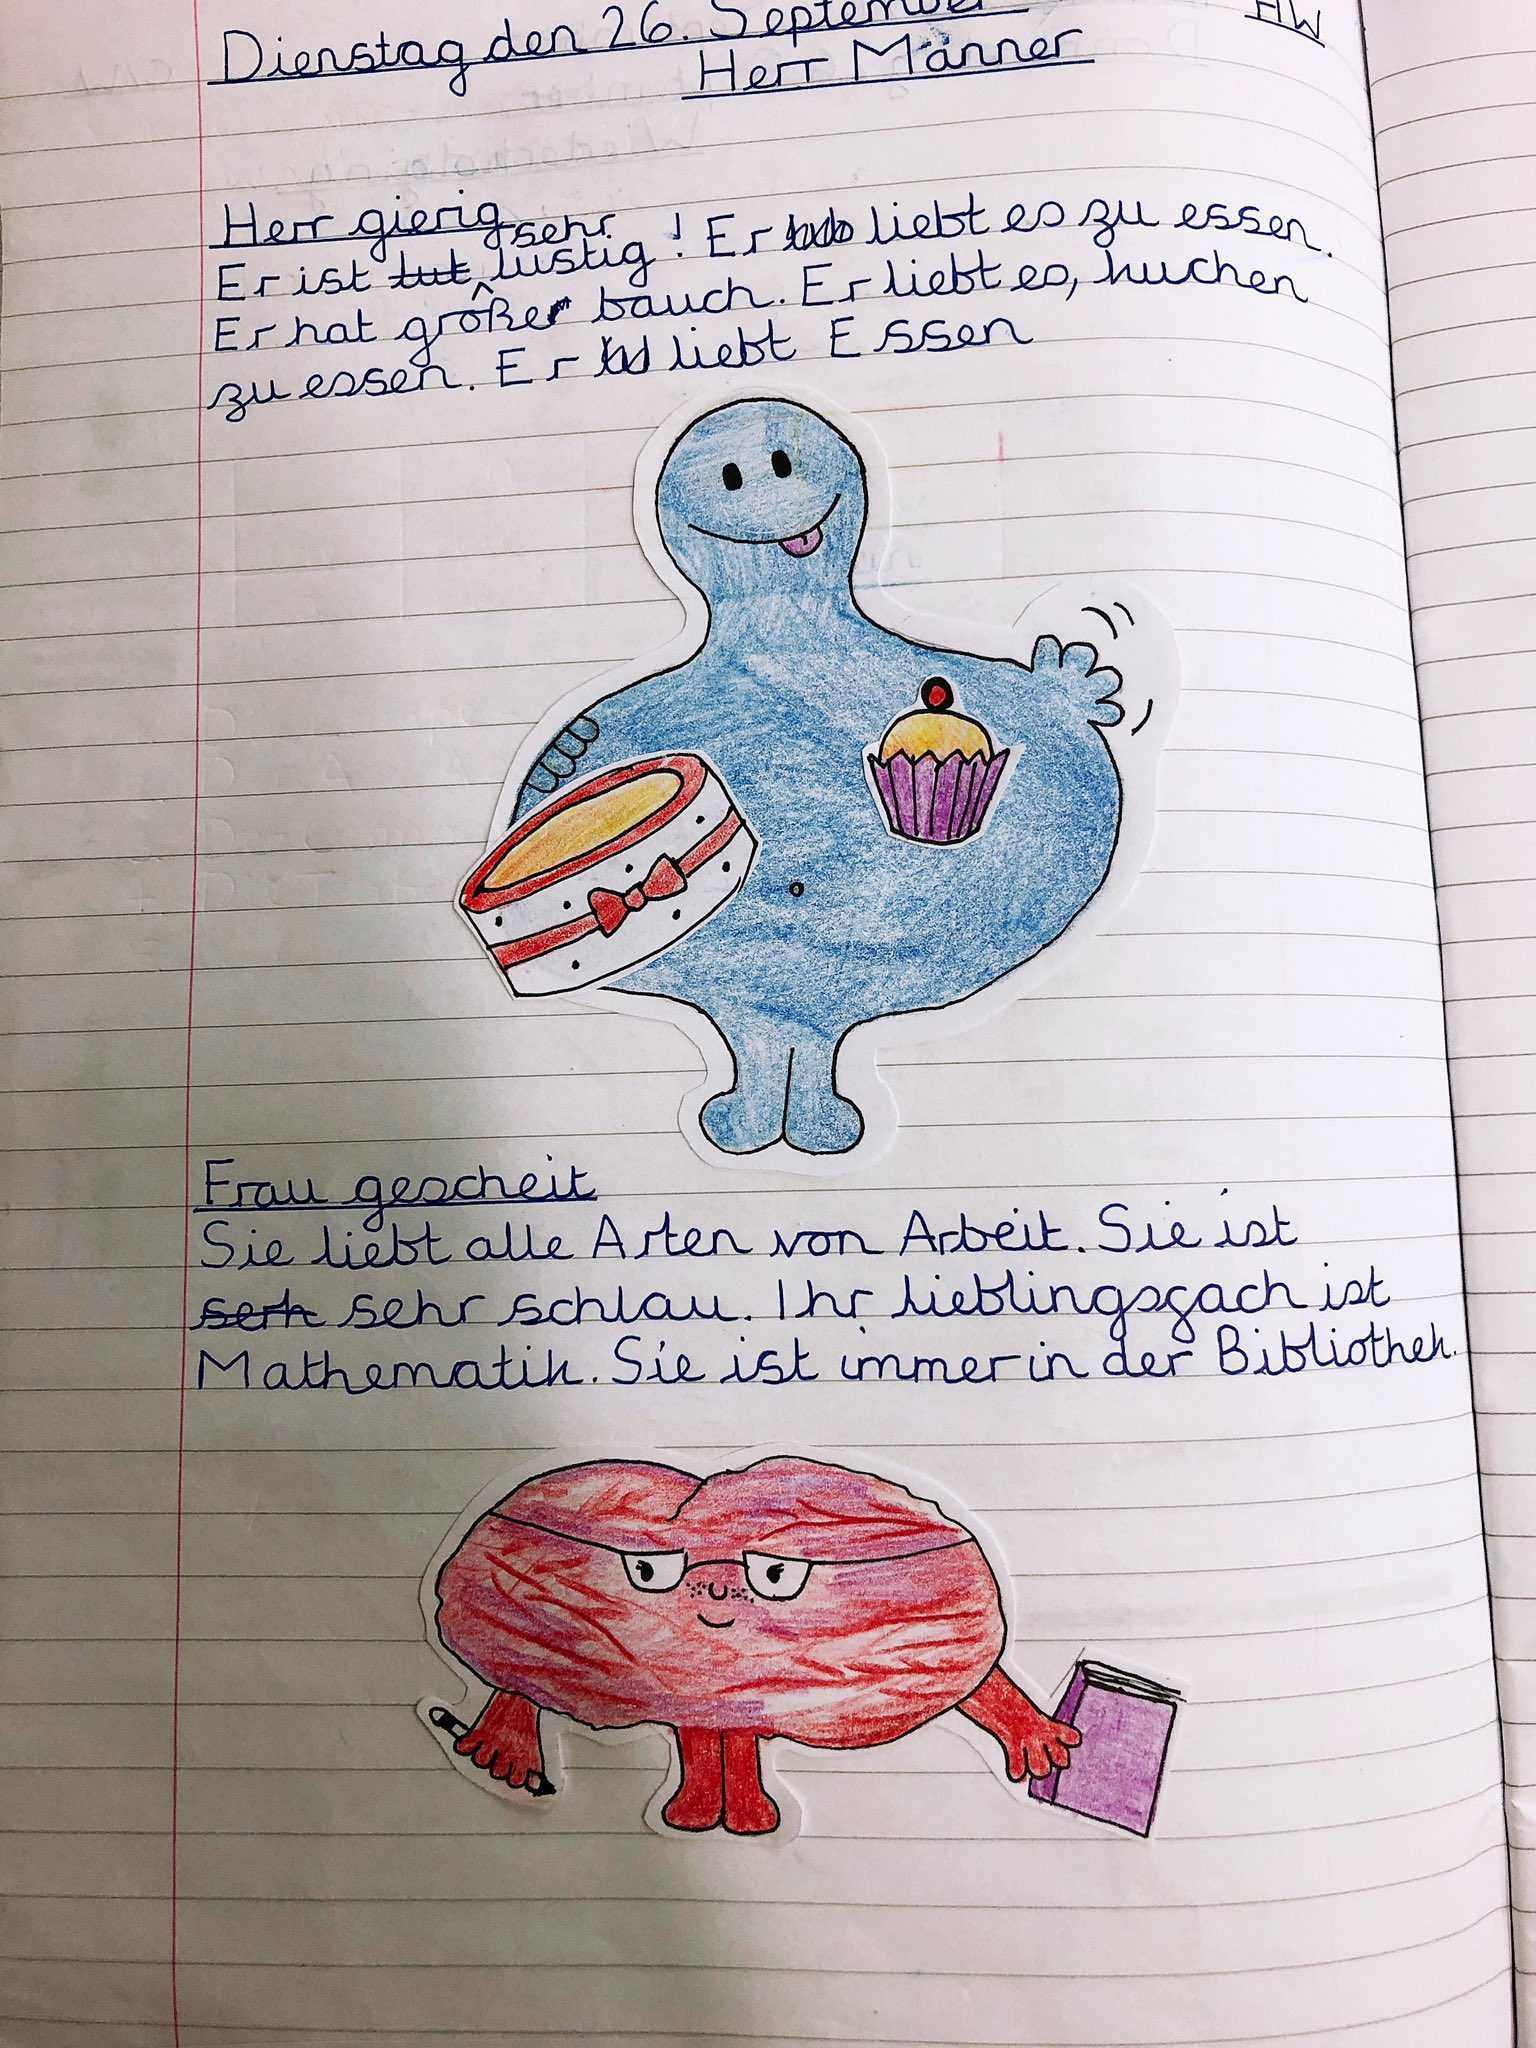 HW
Dienstag den 26. September
Herr Männer
Herr gierig
Er ist tut sehr lustig! Er liebt es zu essen.
Er hat großer bauch. Er liebt es, kuchen
zu essen. Er liebt Essen
Frau gescheit
Sie liebt alle Arten von Arbeit. Sie ist
serh sehr schlau. Ihr lieblingsfach ist
Mathematik. Sie ist immer in der Bibliothek.